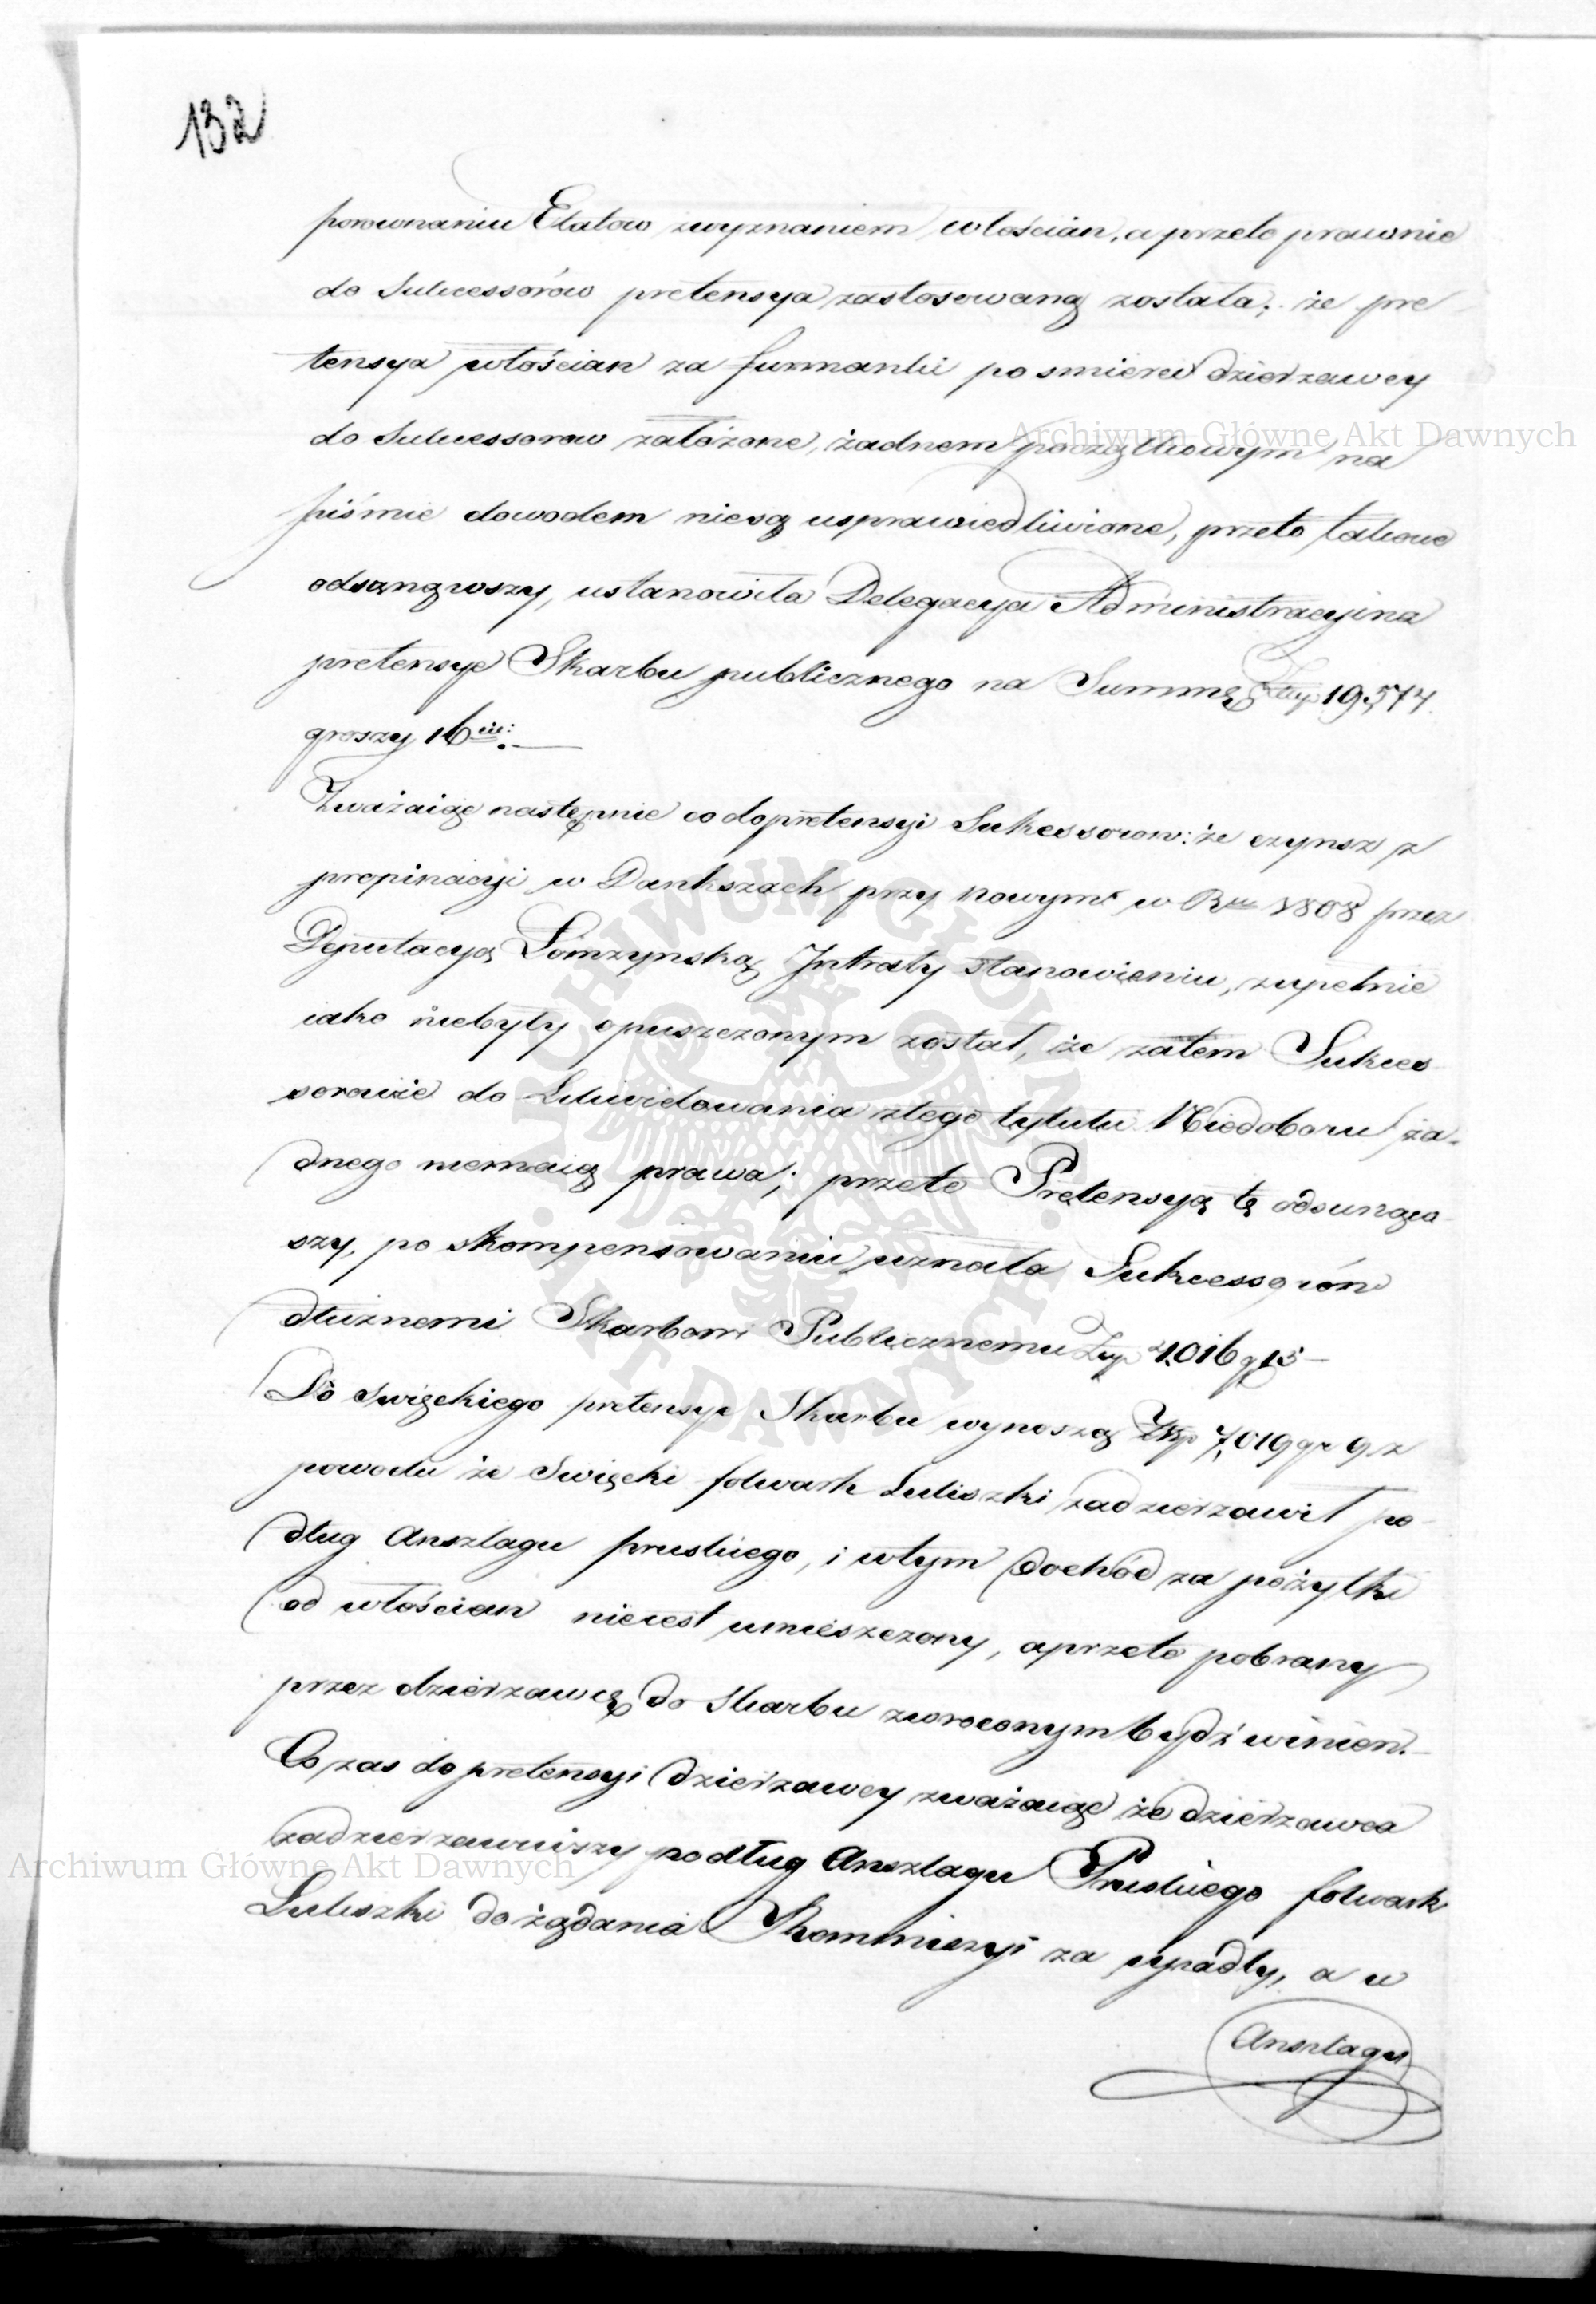 132
porownaniu Etatow zwyznaniem włościan, a przeto prawnie
do Sukcessórow pretensya zastosowaną została; że pre
tensya włościan za furmanki po smierci dzierzawcy
do Sukcessorow założone, żadnem początkowym na
piśmie dowodem niesą usprawiedliwione, przeto takowe
odsunąwszy, ustanowiła Delegacya Administracyjna
pretensye Skarbu publicznego na Summę Złp 19,574.
groszy 16
Zważaiąc następnie co do pretensyi Sukcessorow: że czynsz z
propinacyi w Dankszach przy nowym w Rku 1808 przez
Deputacyą Łomzynską Intraty stanowieniu, zupełnie
iako niebyły opuszczonym został, że zatem Sukces
sorowie do Likwidowania ztego tytułu Niedoboru ża-
dnego niemaią prawa; przeto Pretensyą tę odsunąw
szy, po skompensowaniu uznała Sukcessorów
dłużnemi Skarbowi Publicznemu Złp 4,016 g 15
Do Swięckiego pretensye Skarbu wynoszą Złp 7,019 gr 9 z
powodu że Swięcki folwark Luliszki zadzierzawił po
dług Anszlagu pruskiego, i wtym dochód za pożytki
od włościan nieiest umieszczony, aprzeto pobrany
przez dzierzawcę do Skarbu zwroconym bydź winien.
Co zas do pretensyi dzierzawcy zważaiąc że dzierzawca
zadzierzawiwszy podług Anszlagu Pruskiego folwark
Luliszki do żądania Kommissyi za upadły, a w
Anszlagu
Archiwum Główne Akt Dawnych
Archiwum Główne Akt Dawnych
ARCHIWUM GŁÓWNE AKT DAWNYCH